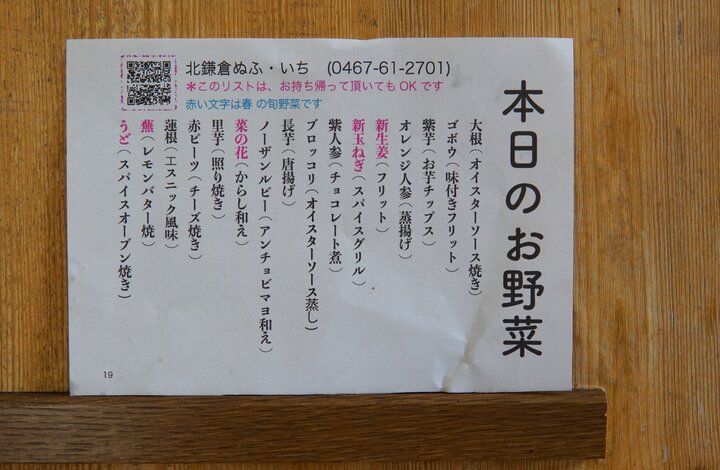 本日のお野菜
北鎌倉ぬふ・いち (0467-61-2701)
*このリストは、お持ち帰って頂いても OK です
赤い文字は春 の旬野菜です
大根(オイスターソース焼き)
ゴボウ(味付きフリット)
紫芋(お芋チップス)
オレンジ人参(蒸揚げ)
新生姜(フリット)
新玉ねぎ(スパイスグリル)
紫人参(チョコレート煮)
ブロッコリ(オイスターソース蒸し)
長芋(唐揚げ)
ノーザンルビー(アンチョビマヨ和え)
菜の花(からし和え)
里芋(照り焼き)
赤ビーツ(チーズ焼き)
蓮根(エスニック風味)
蕪(レモンバター焼)
うど(スパイスオーブン焼き)
19